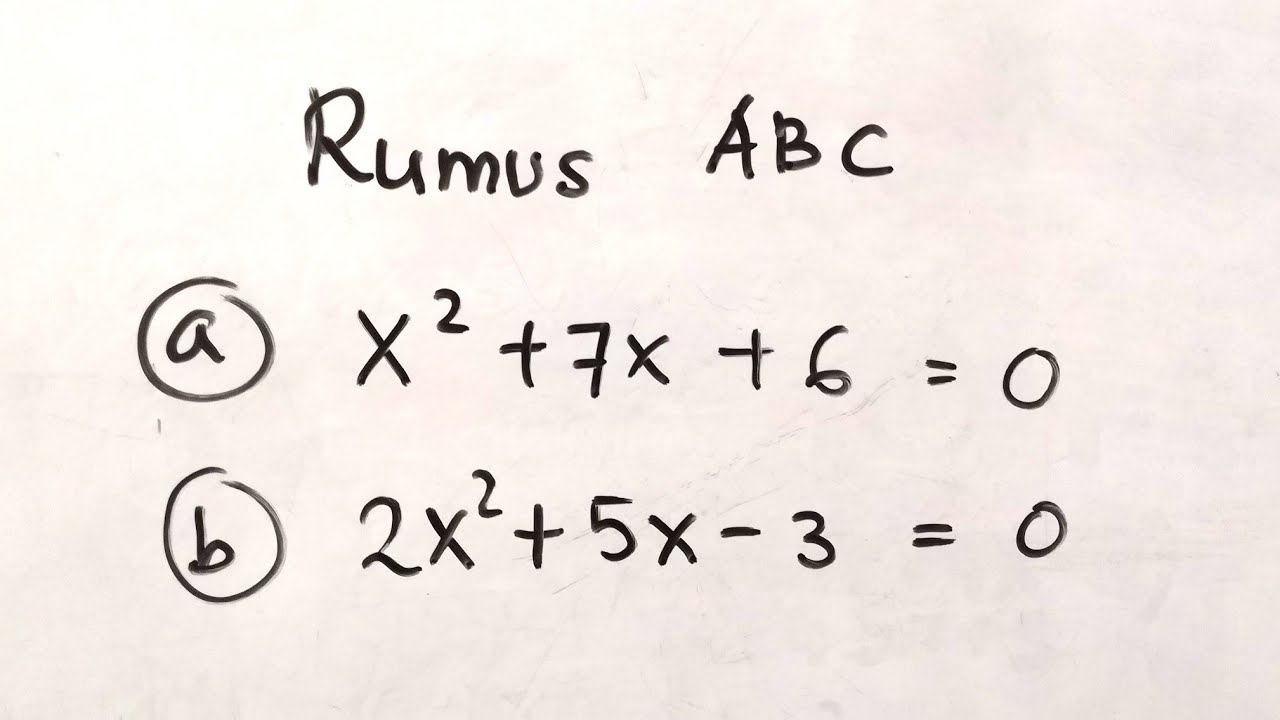 Rumus ABC
(a) x² + 7x + 6 = 0
(b) 2x² + 5x - 3 = 0